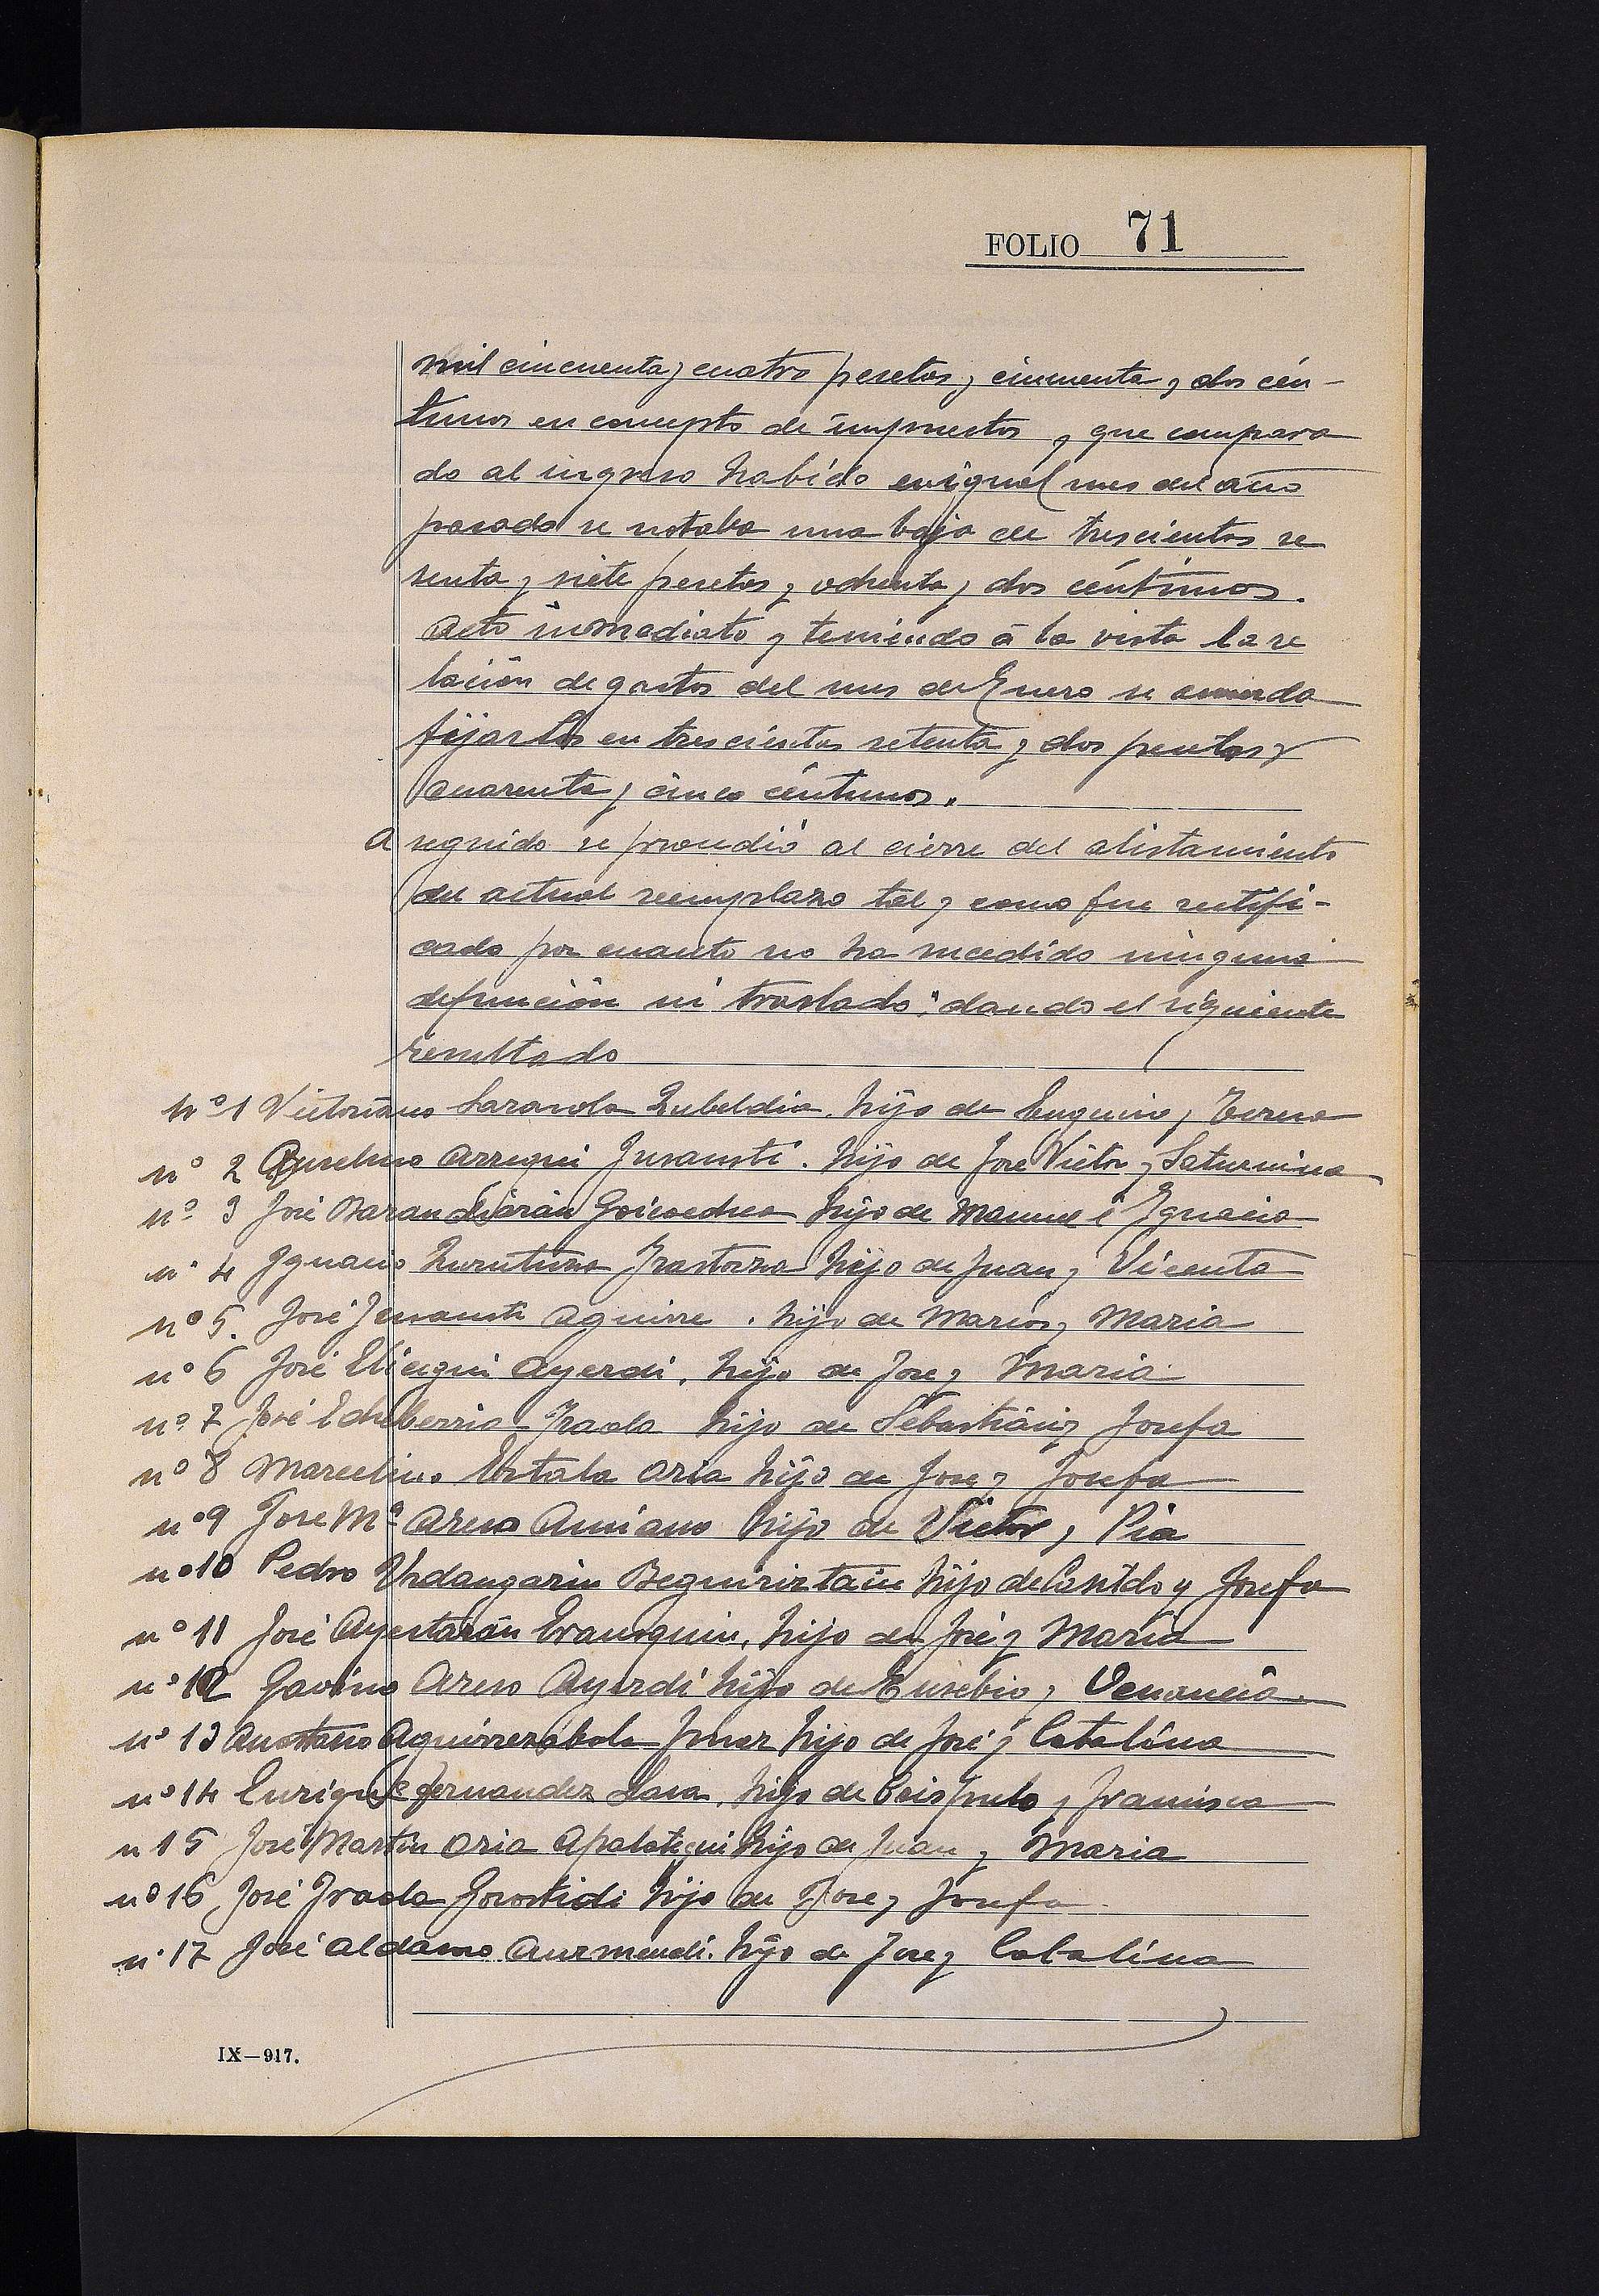 FOLIO 71
mil cincuenta y cuatro pesetas y cincuenta y dos cén-
timos en concepto de impuestos y que compara
do al ingreso habido en igual mes del año
pasado se notaba una baja de trescientas se
senta y siete pesetas y ochenta y dos céntimos.
Acto inmediato y teniendo á la vista la re
lación de gastos del mes de Enero se acuerda
fijarlos en trescientas setenta y dos pesetas y
cuarenta y cinco céntimos.
A seguido se procedió al cierre del alistamiento
del actual reemplazo tal y como fue rectifi-
cado por cuanto no ha sucedido ninguna
defunción ni traslado; dando el siguiente
resultado
nº 1 Victoriano Zubeldia. hijo de y
nº 2 Anselmo Arregui Insausti. hijo de José Victor y Saturnina
nº 3 José Barandiarán Goicoechea hijo de Manuel é Ignacia
nº 4 Ignacio Zurutuza Irastorza hijo de Juan y Vicenta
nº 5. José Insausti Aguirre. hijo de Marcos y Maria
nº 6 José Eliegui Ayerdi, hijo de José y Maria
nº 7 José Echeberria Iraola hijo de Sebastián y Josefa
nº 8 Marcelino Oria hijo de José y Josefa
nº 9 Jose Mª Areso Amiano hijo de Victor y Pia
nº 10 Pedro Urdangarin Beguiristain hijo de Casildo y Josefa
nº 11 José Ayestarán Erausquin, hijo de José y Maria
nº 12 Gavino Areso Ayerdi hijo de Eusebio y Venancia.
nº 13 Anastasio Aguirrezabala hijo de José y Catalina
nº 14 Enrique Fernandez Lara, hijo de Crispulo y Francisca
n 15 José Martin Oria Apalategui hijo de Juan y Maria
nº 16 José Iraola Gorostidi hijo de Jose y Josefa
nº 17 José Aldasoro Aurmendi. hijo de Jose y Catalina
IX—917.